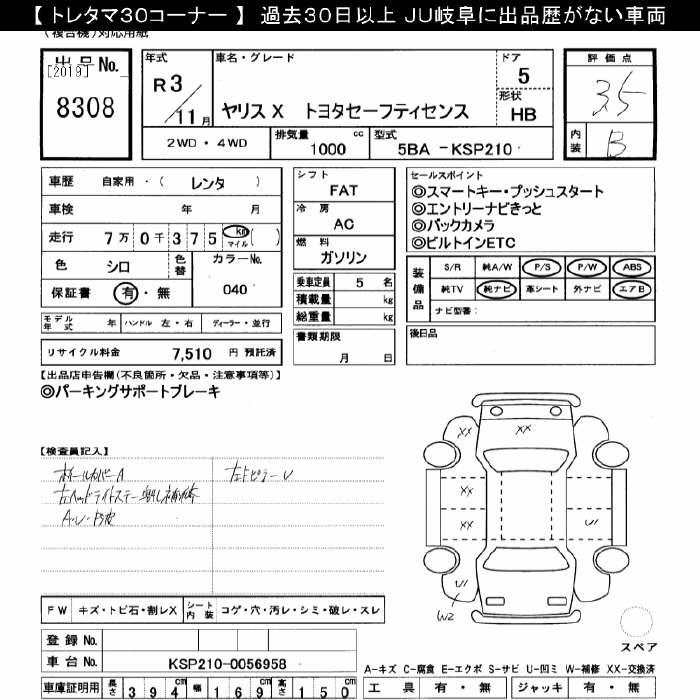 【 トレタマ30コーナー 】 過去30日以上 JU岐阜に出品歴がない車両
(複合機)対応用紙
出品No.
[2019]
8308
年式
R3/11月
車名・グレード
ヤリス X トヨタセーフティセンス
ドア
5
形状
HB
2WD・4WD
排気量 cc
1000
型式
5BA -KSP210
評価点
3.5
内装
B
車歴 自家用・( レンタ )
車検 年 月
走行 7万0千375 km マイル ( )
色 シロ
色替
カラーNo.
040
保証書 有・無
シフト
FAT
冷房
AC
燃料
ガソリン
乗車定員 5 名
積載量 kg
総重量 kg
書類期限
月 日
セールスポイント
◎スマートキー・プッシュスタート
◎エントリーナビきっと
◎バックカメラ
◎ビルトインETC
装備品
S/R 純A/W P/S P/W ABS
純TV 純ナビ 革シート 外ナビ エアB
ナビ型番:
後日品
モデル年式 年 ハンドル 左・右 ディーラー・並行
リサイクル料金 7,510 円 預託済
【出品店申告欄(不良箇所・欠品・注意事項等)】
◎パーキングサポートブレーキ
【検査員記入】
ホイールカバーA
A・U・
XX XX
XX
XX
U
U
W2
FW キズ・トビ石・割レX シート内装 コゲ・穴・汚レ・シミ・破レ・スレ
登録 No.
車台 No. KSP210-0056958
車庫証明用 長さ 394cm 幅 169cm 高さ 150cm
スペア
A-キズ C-腐食 E-エクボ S-サビ U-凹ミ W-補修 XX-交換済
工具 有・無 ジャッキ 有・無